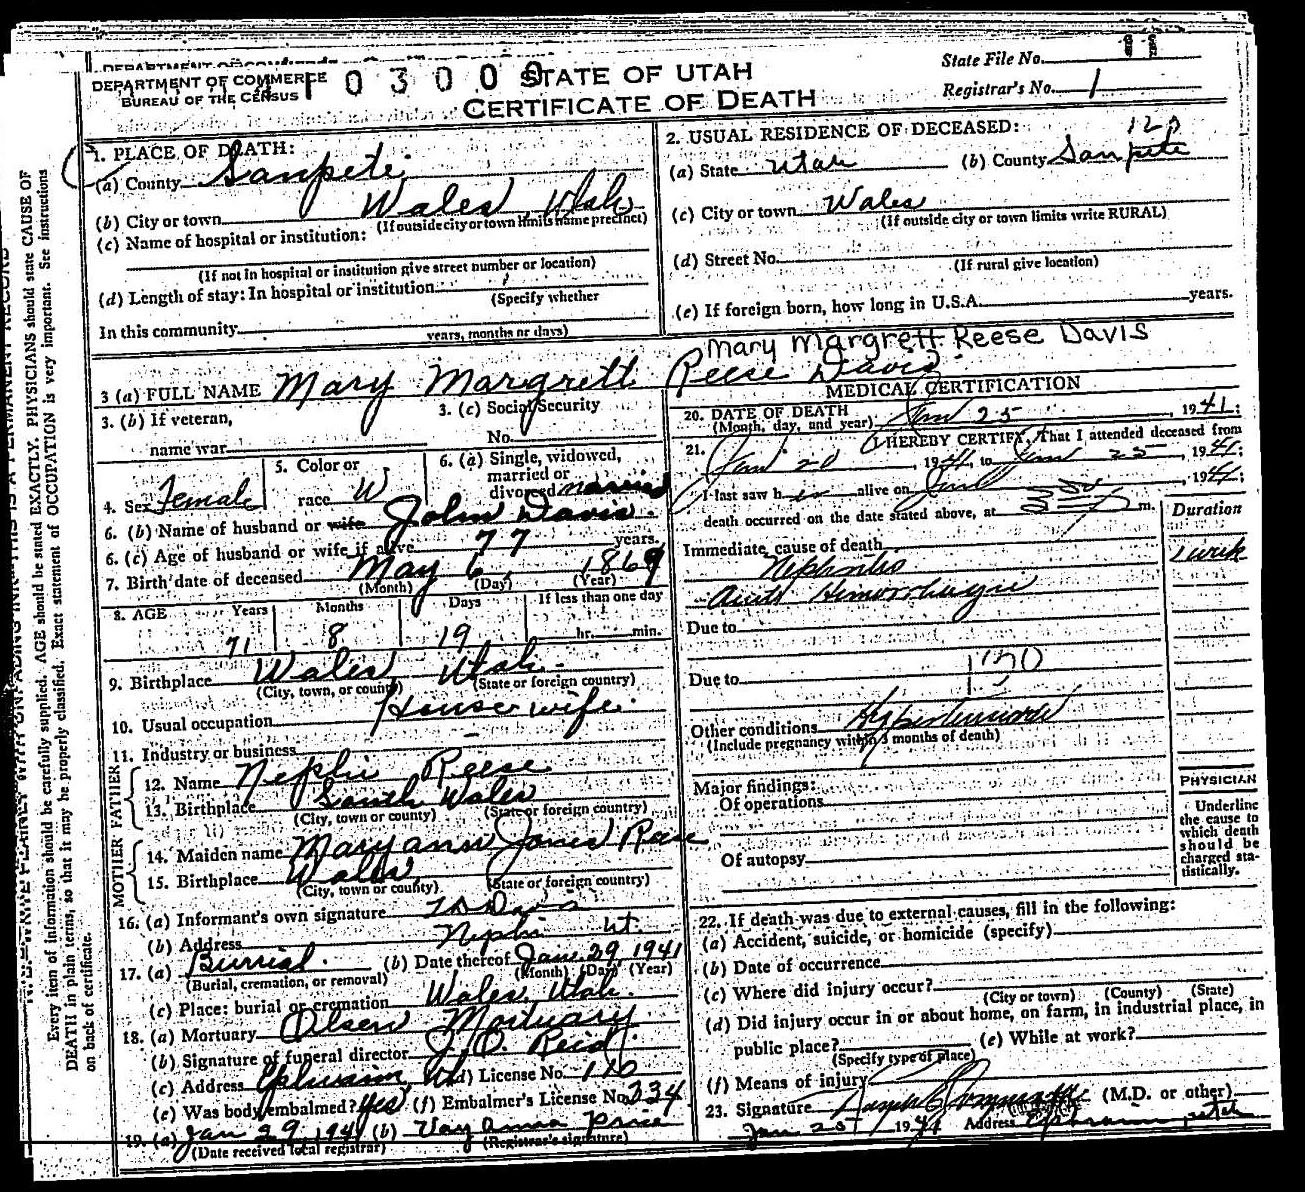 DEPARTMENT OF COMMERCE
BUREAU OF THE CENSUS
0 3 0 0 0
STATE OF UTAH
CERTIFICATE OF DEATH
State File No.
Registrar's No. 1
1. PLACE OF DEATH:
(a) County Sanpete
(b) City or town Wales, Utah
(If outside city or town limits name precinct)
(c) Name of hospital or institution:
(If not in hospital or institution give street number or location)
(d) Length of stay: In hospital or institution
(Specify whether
In this community
years, months or days)
2. USUAL RESIDENCE OF DECEASED:
(a) State Utah (b) County Sanpete
(c) City or town Wales
(If outside city or town limits write RURAL)
(d) Street No.
(If rural give location)
(e) If foreign born, how long in U.S.A. years.
Mary Margrett Reese Davis
3 (a) FULL NAME Mary Margrett Reese Davis
3. (b) If veteran,
name war
3. (c) Social Security
No.
4. Sex Female
5. Color or
race W
6. (a) Single, widowed,
married or
divorced married
6. (b) Name of husband or wife John Davis
6. (c) Age of husband or wife if alive 77 years.
7. Birth date of deceased May 6, 1869
(Month) (Day) (Year)
8. AGE Years Months Days If less than one day
71 8 19 hr. min.
9. Birthplace Wales Utah
(City, town, or county) (State or foreign country)
10. Usual occupation House wife
11. Industry or business
FATHER
12. Name Nephi Reese
13. Birthplace South Wales
(City, town or county) (State or foreign country)
MOTHER
14. Maiden name Maryann Jones Reese
15. Birthplace Wales
(City, town or county) (State or foreign country)
16. (a) Informant's own signature Davis
(b) Address Nephi Ut.
17. (a) Burrial. (b) Date thereof Jan. 29, 1941
(Burial, cremation, or removal) (Month) (Day) (Year)
(c) Place: burial or cremation Wales, Utah.
18. (a) Mortuary Olsen Mortuary
(b) Signature of funeral director
(c) Address Ephraim, Ut (d) License No. 110
(e) Was body embalmed? yes (f) Embalmer's License No. 334
19. (a) Jan 29, 1941 (b) Price
(Date received local registrar) (Registrar's signature)
MEDICAL CERTIFICATION
20. DATE OF DEATH
(Month, day, and year) Jan 25, 1941;
21. I HEREBY CERTIFY, That I attended deceased from
Jan 20, 1941, to Jan 25, 1941;
I last saw her alive on Jan, 1941;
death occurred on the date stated above, at m.
Duration
Immediate cause of death 1 week
Nephritis
Acute Hemorrhagic
Due to
Due to
130
Other conditions
(Include pregnancy within 3 months of death)
Major findings:
Of operations
Of autopsy
PHYSICIAN
Underline
the cause to
which death
should be
charged sta-
tistically.
22. If death was due to external causes, fill in the following:
(a) Accident, suicide, or homicide (specify)
(b) Date of occurrence
(c) Where did injury occur?
(City or town) (County) (State)
(d) Did injury occur in or about home, on farm, in industrial place, in
public place? (e) While at work?
(Specify type of place)
(f) Means of injury
23. Signature (M.D. or other)
1941 Address Ephraim, Utah
Every item of information should be carefully supplied. AGE should be stated EXACTLY. PHYSICIANS should state CAUSE OF
DEATH in plain terms, so that it may be properly classified. Exact statement of OCCUPATION is very important. See instructions
on back of certificate.